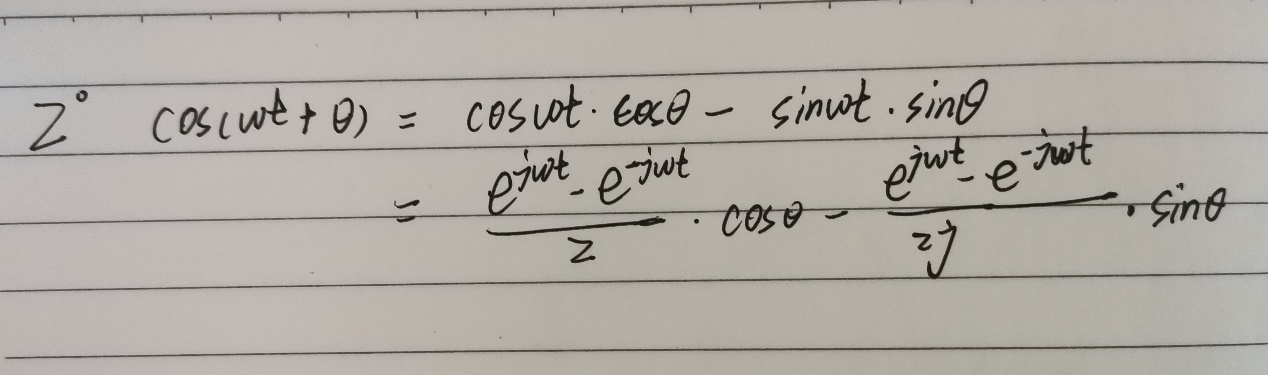 2° cos(ωt + θ) = cosωt · cosθ − sinωt · sinθ
= (e^{jωt} - e^{-jωt})/2 · cosθ − (e^{jωt} - e^{-jωt})/2j · sinθ